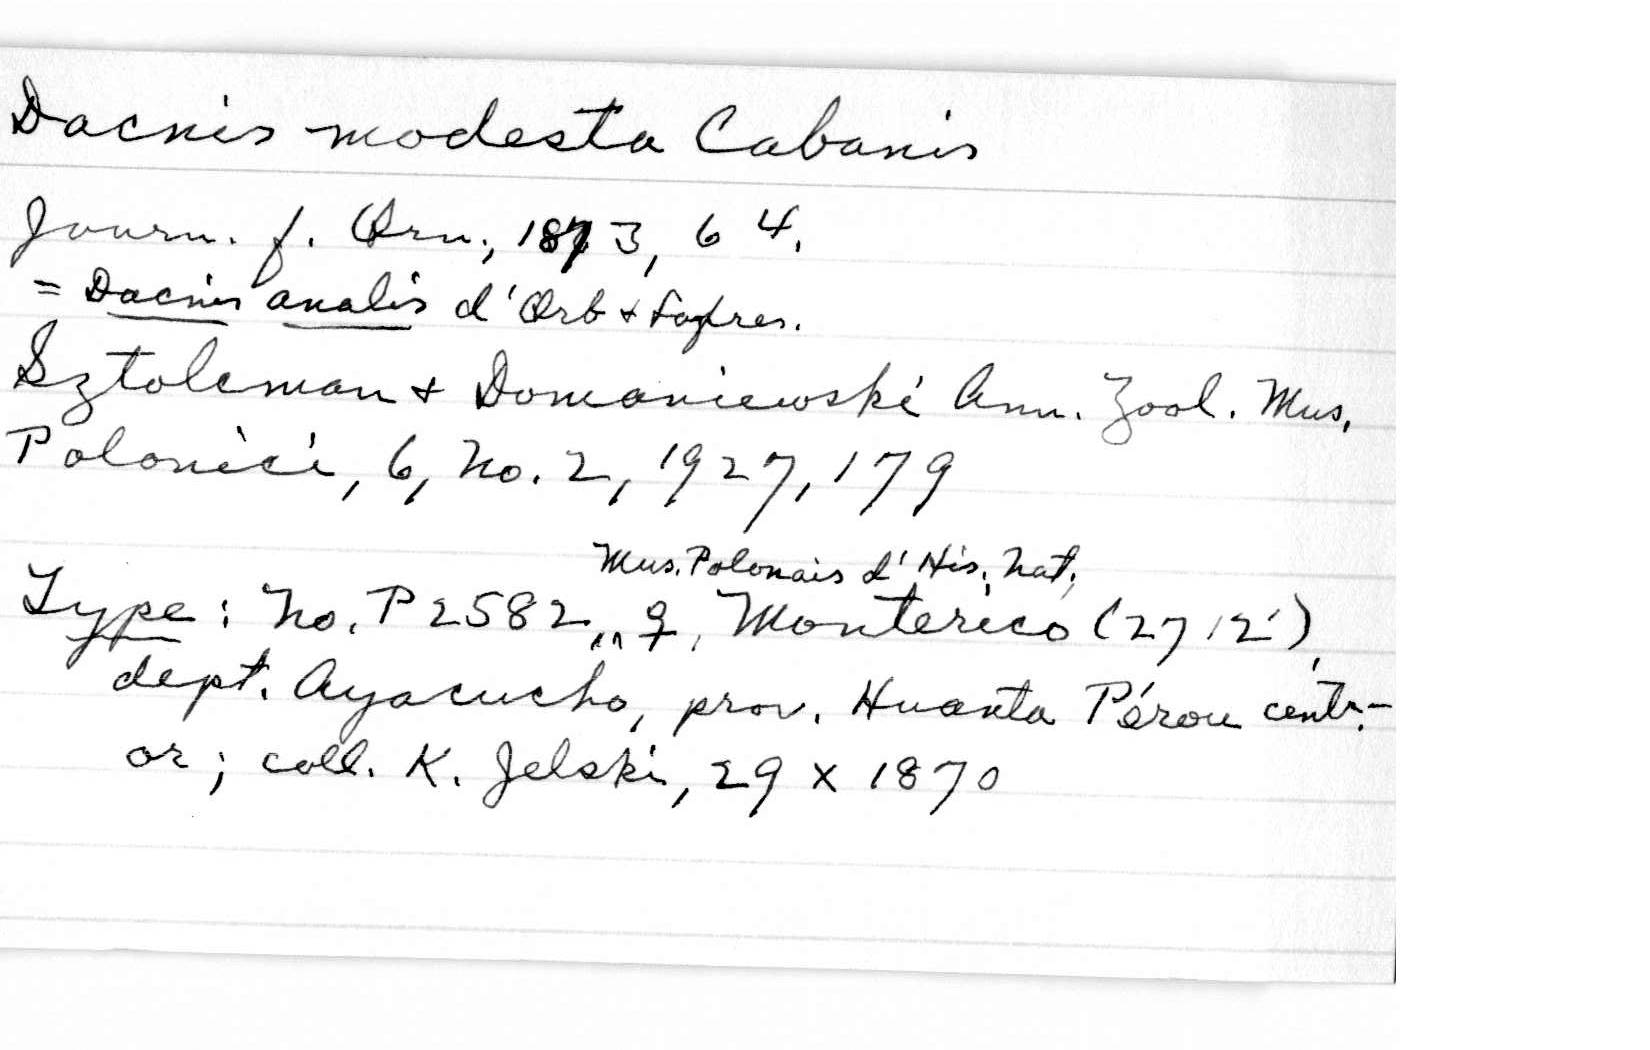 Dacnis modesta Cabanis
Journ. f. Orn., 1873, 64.
= Dacnis analis d'Orb & Lafres.
Sztolcman & Domaniewski Ann. Zool. Mus.
Polonici, 6, No. 2, 1927, 179
Mus. Polonais d'His. Nat.
Type: No. P2582, ♀, Monterico (2712')
dept. Ayacucho, prov. Huanta Pérou centr.-
or; coll. K. Jelski, 29 X 1870